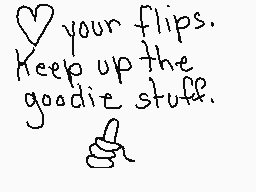 ♡ your flips.
Keep up the
goodie stuff.